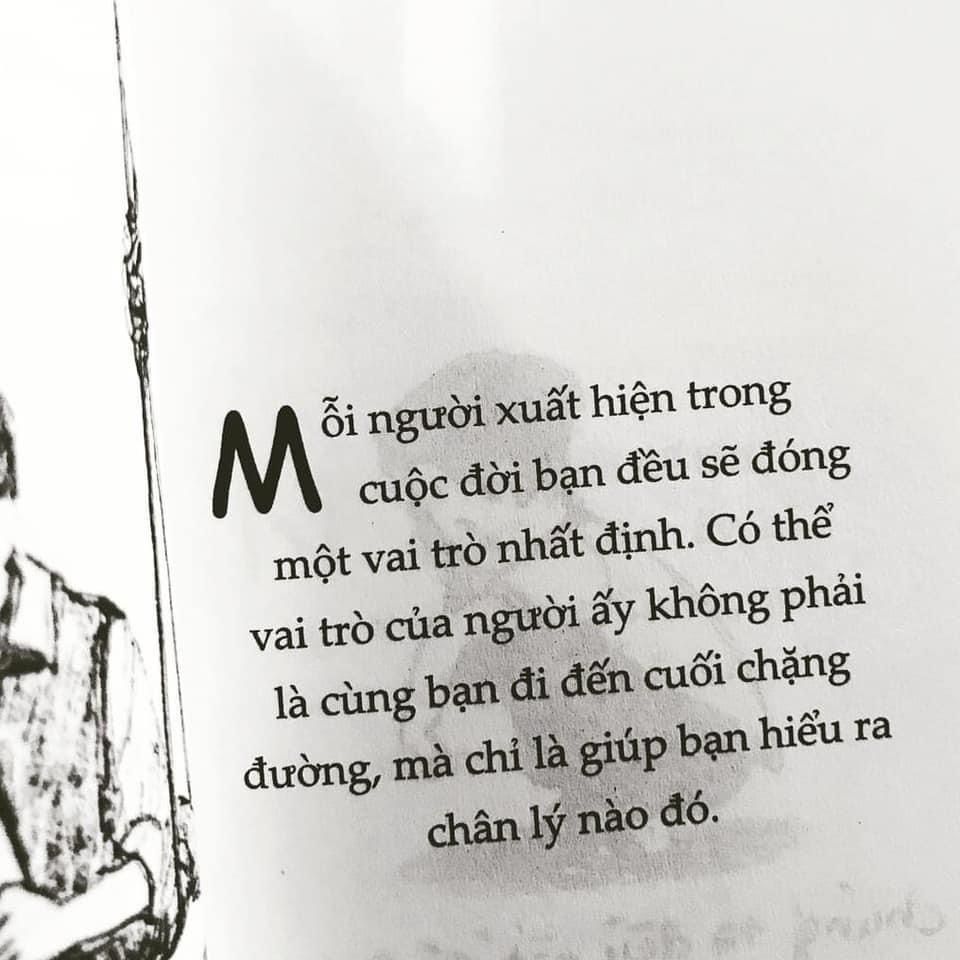 Mỗi người xuất hiện trong
cuộc đời bạn đều sẽ đóng
một vai trò nhất định. Có thể
vai trò của người ấy không phải
là cùng bạn đi đến cuối chặng
đường, mà chỉ là giúp bạn hiểu ra
chân lý nào đó.